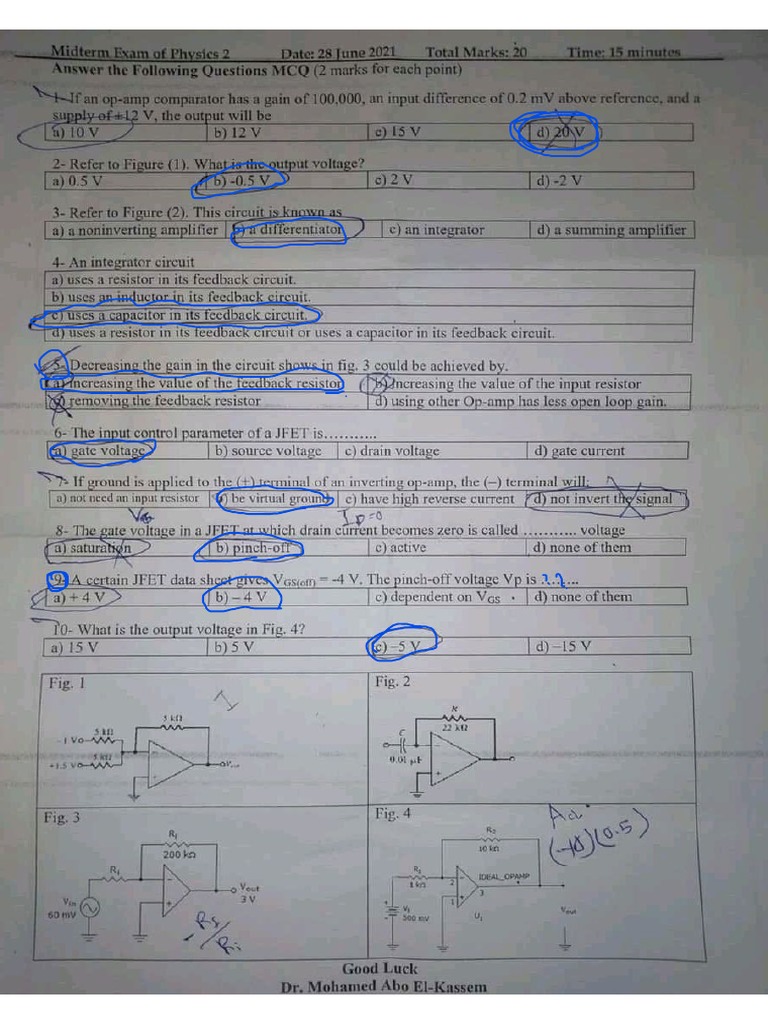 Midterm Exam of Physics 2 Date: 28 June 2021 Total Marks: 20 Time: 15 minutes
Answer the Following Questions MCQ (2 marks for each point)
1- If an op-amp comparator has a gain of 100,000, an input difference of 0.2 mV above reference, and a
supply of ±12 V, the output will be
a) 10 V b) 12 V c) 15 V d) 20 V
2- Refer to Figure (1). What is the output voltage?
a) 0.5 V b) -0.5 V c) 2 V d) -2 V
3- Refer to Figure (2). This circuit is known as
a) a noninverting amplifier b) a differentiator c) an integrator d) a summing amplifier
4- An integrator circuit
a) uses a resistor in its feedback circuit.
b) uses an inductor in its feedback circuit.
c) uses a capacitor in its feedback circuit.
d) uses a resistor in its feedback circuit or uses a capacitor in its feedback circuit.
5- Decreasing the gain in the circuit shows in fig. 3 could be achieved by.
a) increasing the value of the feedback resistor b) Increasing the value of the input resistor
c) removing the feedback resistor d) using other Op-amp has less open loop gain.
6- The input control parameter of a JFET is...........
a) gate voltage b) source voltage c) drain voltage d) gate current
7- If ground is applied to the (+) terminal of an inverting op-amp, the (–) terminal will:
a) not need an input resistor b) be virtual ground c) have high reverse current d) not invert the signal
VG ID=0
8- The gate voltage in a JFET at which drain current becomes zero is called ........... voltage
a) saturation b) pinch-off c) active d) none of them
9- A certain JFET data sheet gives VGS(off) = -4 V. The pinch-off voltage Vp is ?.?...
a) + 4 V b) – 4 V c) dependent on VGS d) none of them
10- What is the output voltage in Fig. 4?
a) 15 V b) 5 V c) –5 V d) –15 V
Fig. 1 Fig. 2
5 kΩ
5 kΩ
-1 V
5 kΩ
+1.5 V
Vout
R
22 kΩ
C
0.01 µF
Fig. 3 Fig. 4
Rf
200 kΩ
Ri
Vin
60 mV
Vout
3 V
-Rf/Ri
(-10)(0.5)
R2
10 kΩ
R1
1 kΩ
IDEAL_OPAMP
2
3
1
V1
500 mV
U1
Vout
Good Luck
Dr. Mohamed Abo El-Kassem